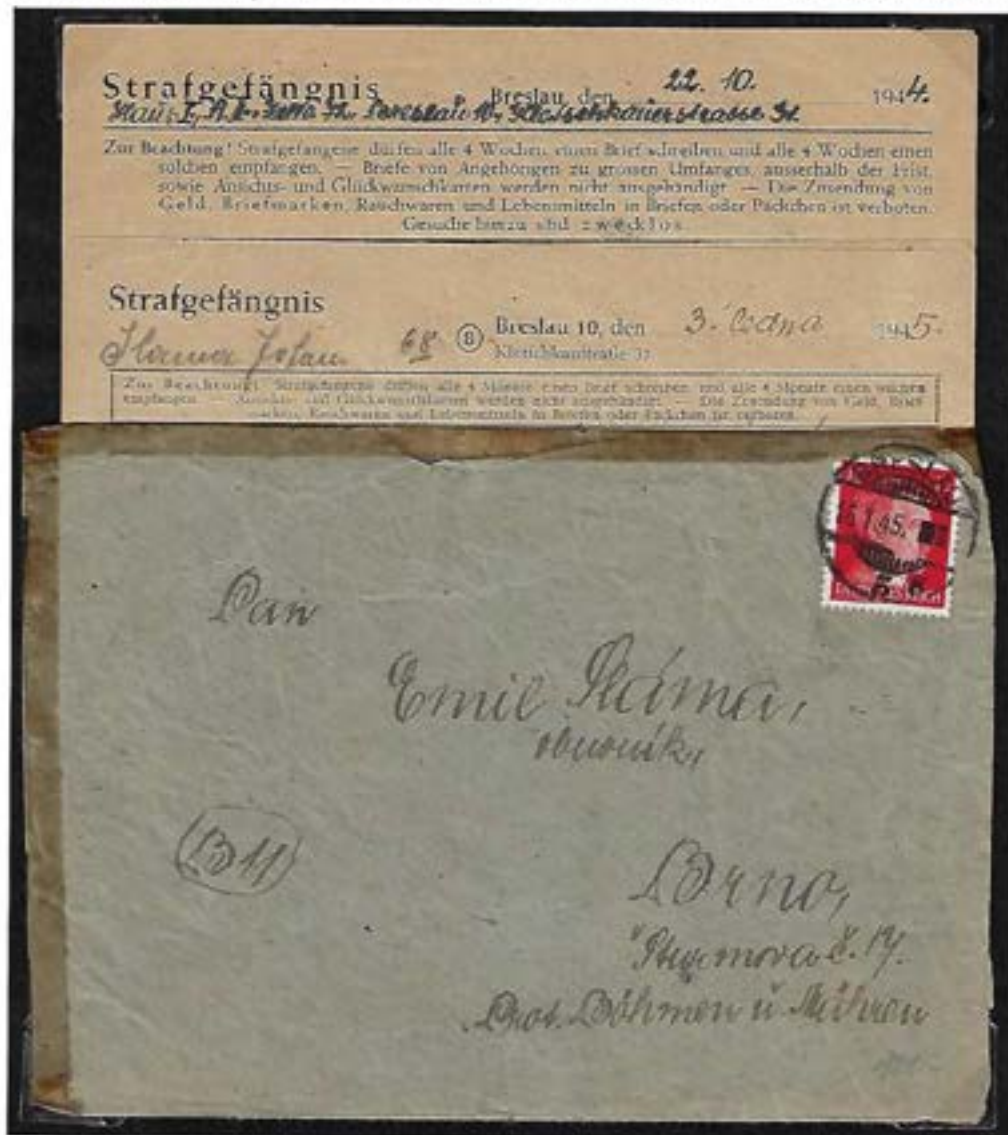 Strafgefängnis Breslau, den 22. 10. 1944.
Haus I,
Zur Beachtung! Strafgefangene dürfen alle 4 Wochen einen Brief schreiben und alle 4 Wochen einen
solchen empfangen. — Briefe von Angehörigen zu grossen Umfanges, ausserhalb der Frist,
sowie Ansichts- und Glückwunschkarten werden nicht ausgehändigt. — Die Zusendung von
Geld, Briefmarken, Rauchwaren und Lebensmitteln in Briefen oder Päckchen ist verboten.
Gesuche hierzu sind zwecklos.
Strafgefängnis
68 8 Breslau 10, den 3. ledna 1945.
Zur Beachtung! Strafgefangene dürfen alle 4 Monate einen Brief schreiben und alle 4 Monate einen solchen
empfangen. — Ansichts- und Glückwunschkarten werden nicht ausgehändigt. — Die Zusendung von Geld,
Rauchwaren und Lebensmitteln in Briefen oder Päckchen ist verboten.
1.45.
Pan
Emil Sláma,
B 11
Brno,
č. 17.
Prot. Böhmen u Mähren